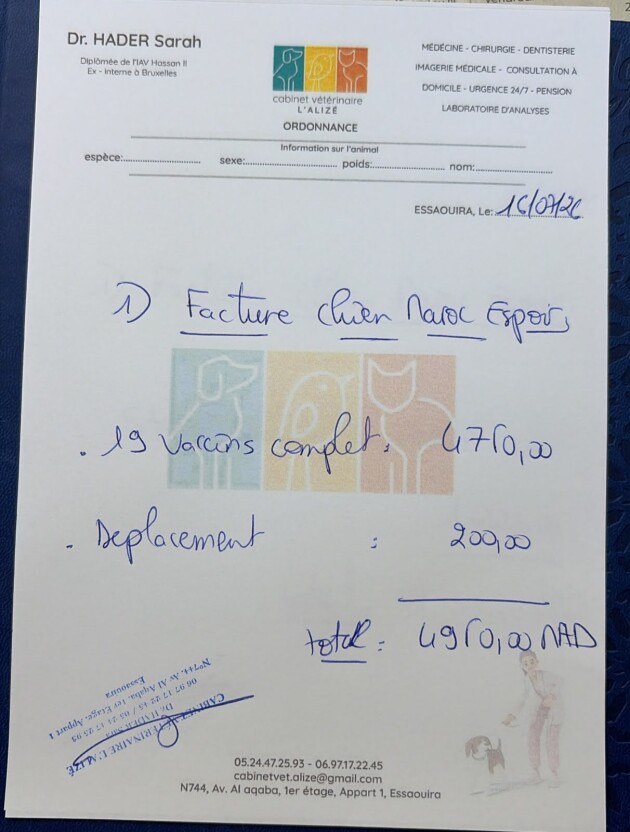 Dr. HADER Sarah
Diplômée de l'IAV Hassan II
Ex - Interne à Bruxelles
cabinet vétérinaire
L'ALIZÉ
MÉDECINE - CHIRURGIE - DENTISTERIE
IMAGERIE MÉDICALE - CONSULTATION À
DOMICILE - URGENCE 24/7 - PENSION
LABORATOIRE D'ANALYSES
ORDONNANCE
Information sur l'animal
espèce: sexe: poids: nom:
ESSAOUIRA, Le: 16/07/26
1) Facture chien Maroc Espoir,
. 19 Vaccins complet : 4750,00
- Deplacement : 200,00
total : 4950,00 MAD
CABINET VETERINAIRE L'ALIZÉ
Dr. HADER Sara
N°744, Av Al Aqaba, 1er Etage, Appart 1
Essaouira
05.24.47.25.93 - 06.97.17.22.45
cabinetvet.alize@gmail.com
N744, Av. Al aqaba, 1er étage, Appart 1, Essaouira